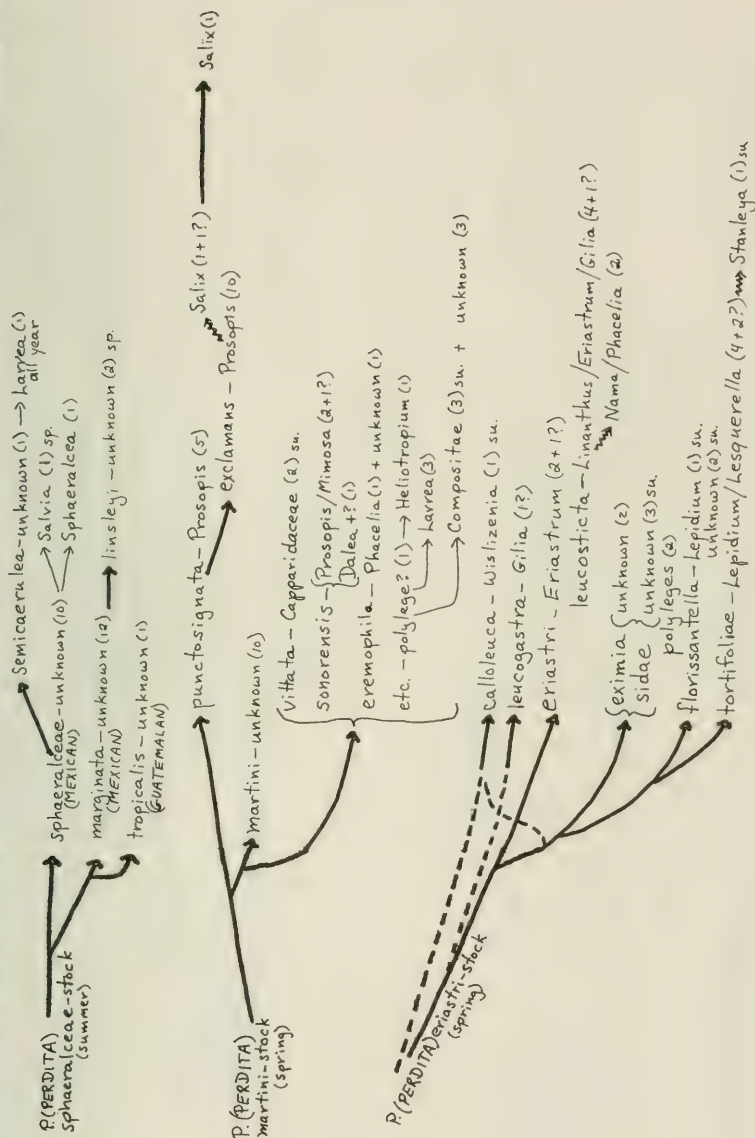 P.(PERDITA)
sphaeralceae-stock
(summer)
sphaeralceae-unknown (10)
(MEXICAN)
Semicaerulea-unknown (1) → Larrea (1)
all year
Salvia (1) sp.
Sphaeralcea (1)
marginata-unknown (12)
(MEXICAN)
linsleyi-unknown (2) sp.
tropicalis-unknown (1)
(GUATEMALAN)
P.(PERDITA)
martini-stock
(spring)
punctosignata-Prosopis (5)
Salix (1+1?)
Salix (1)
exclamans-Prosopis (10)
martini-unknown (10)
vittata-Capparidaceae (2) su.
sonorensis-{Prosopis/Mimosa (2+1?)
Dalea+? (1)
eremophila-Phacelia (1) + unknown (1)
etc.-polylege? (1) → Heliotropium (1)
Larrea (3)
Compositae (3) su. + unknown (3)
P.(PERDITA) eriastri-stock
(spring)
calloleuca-Wislizenia (1) su.
leucogastra-Gilia (1?)
eriastri-Eriastrum (2+1?)
leucosticta-Linanthus/Eriastrum/Gilia (4+1?)
Nama/Phacelia (2)
{eximia {unknown (2)
{sidae {unknown (3) su.
polyleges (2)
florissantella-Lepidium (1) su.
unknown (2) su.
tortifoliae-Lepidium/Lesquerella (4+2?) → Stanleya (1) su